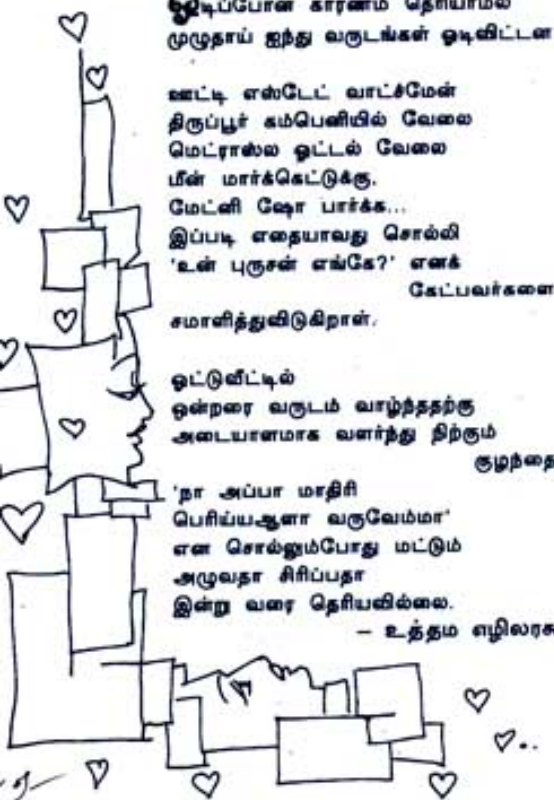 ஓடிப்போன காரணம் தெரியாமல்
முழுதாய் ஐந்து வருடங்கள் ஓடிவிட்டன
ஊட்டி எஸ்டேட் வாட்ச்மேன்
திருப்பூர் கம்பெனியில் வேலை
மெட்ராஸ்ல ஓட்டல் வேலை
மீன் மார்க்கெட்டுக்கு,
மேட்னி ஷோ பார்க்க...
இப்படி எதையாவது சொல்லி
'உன் புருசன் எங்கே?' எனக்
கேட்பவர்களை
சமாளித்துவிடுகிறாள்.
ஓட்டுவீட்டில்
ஒன்றரை வருடம் வாழ்ந்ததற்கு
அடையாளமாக வளர்ந்து நிற்கும்
குழந்தை
'நா அப்பா மாதிரி
பெரிய்யஆளா வருவேம்மா'
என சொல்லும்போது மட்டும்
அழுவதா சிரிப்பதா
இன்று வரை தெரியவில்லை.
– உத்தம எழிலரசு